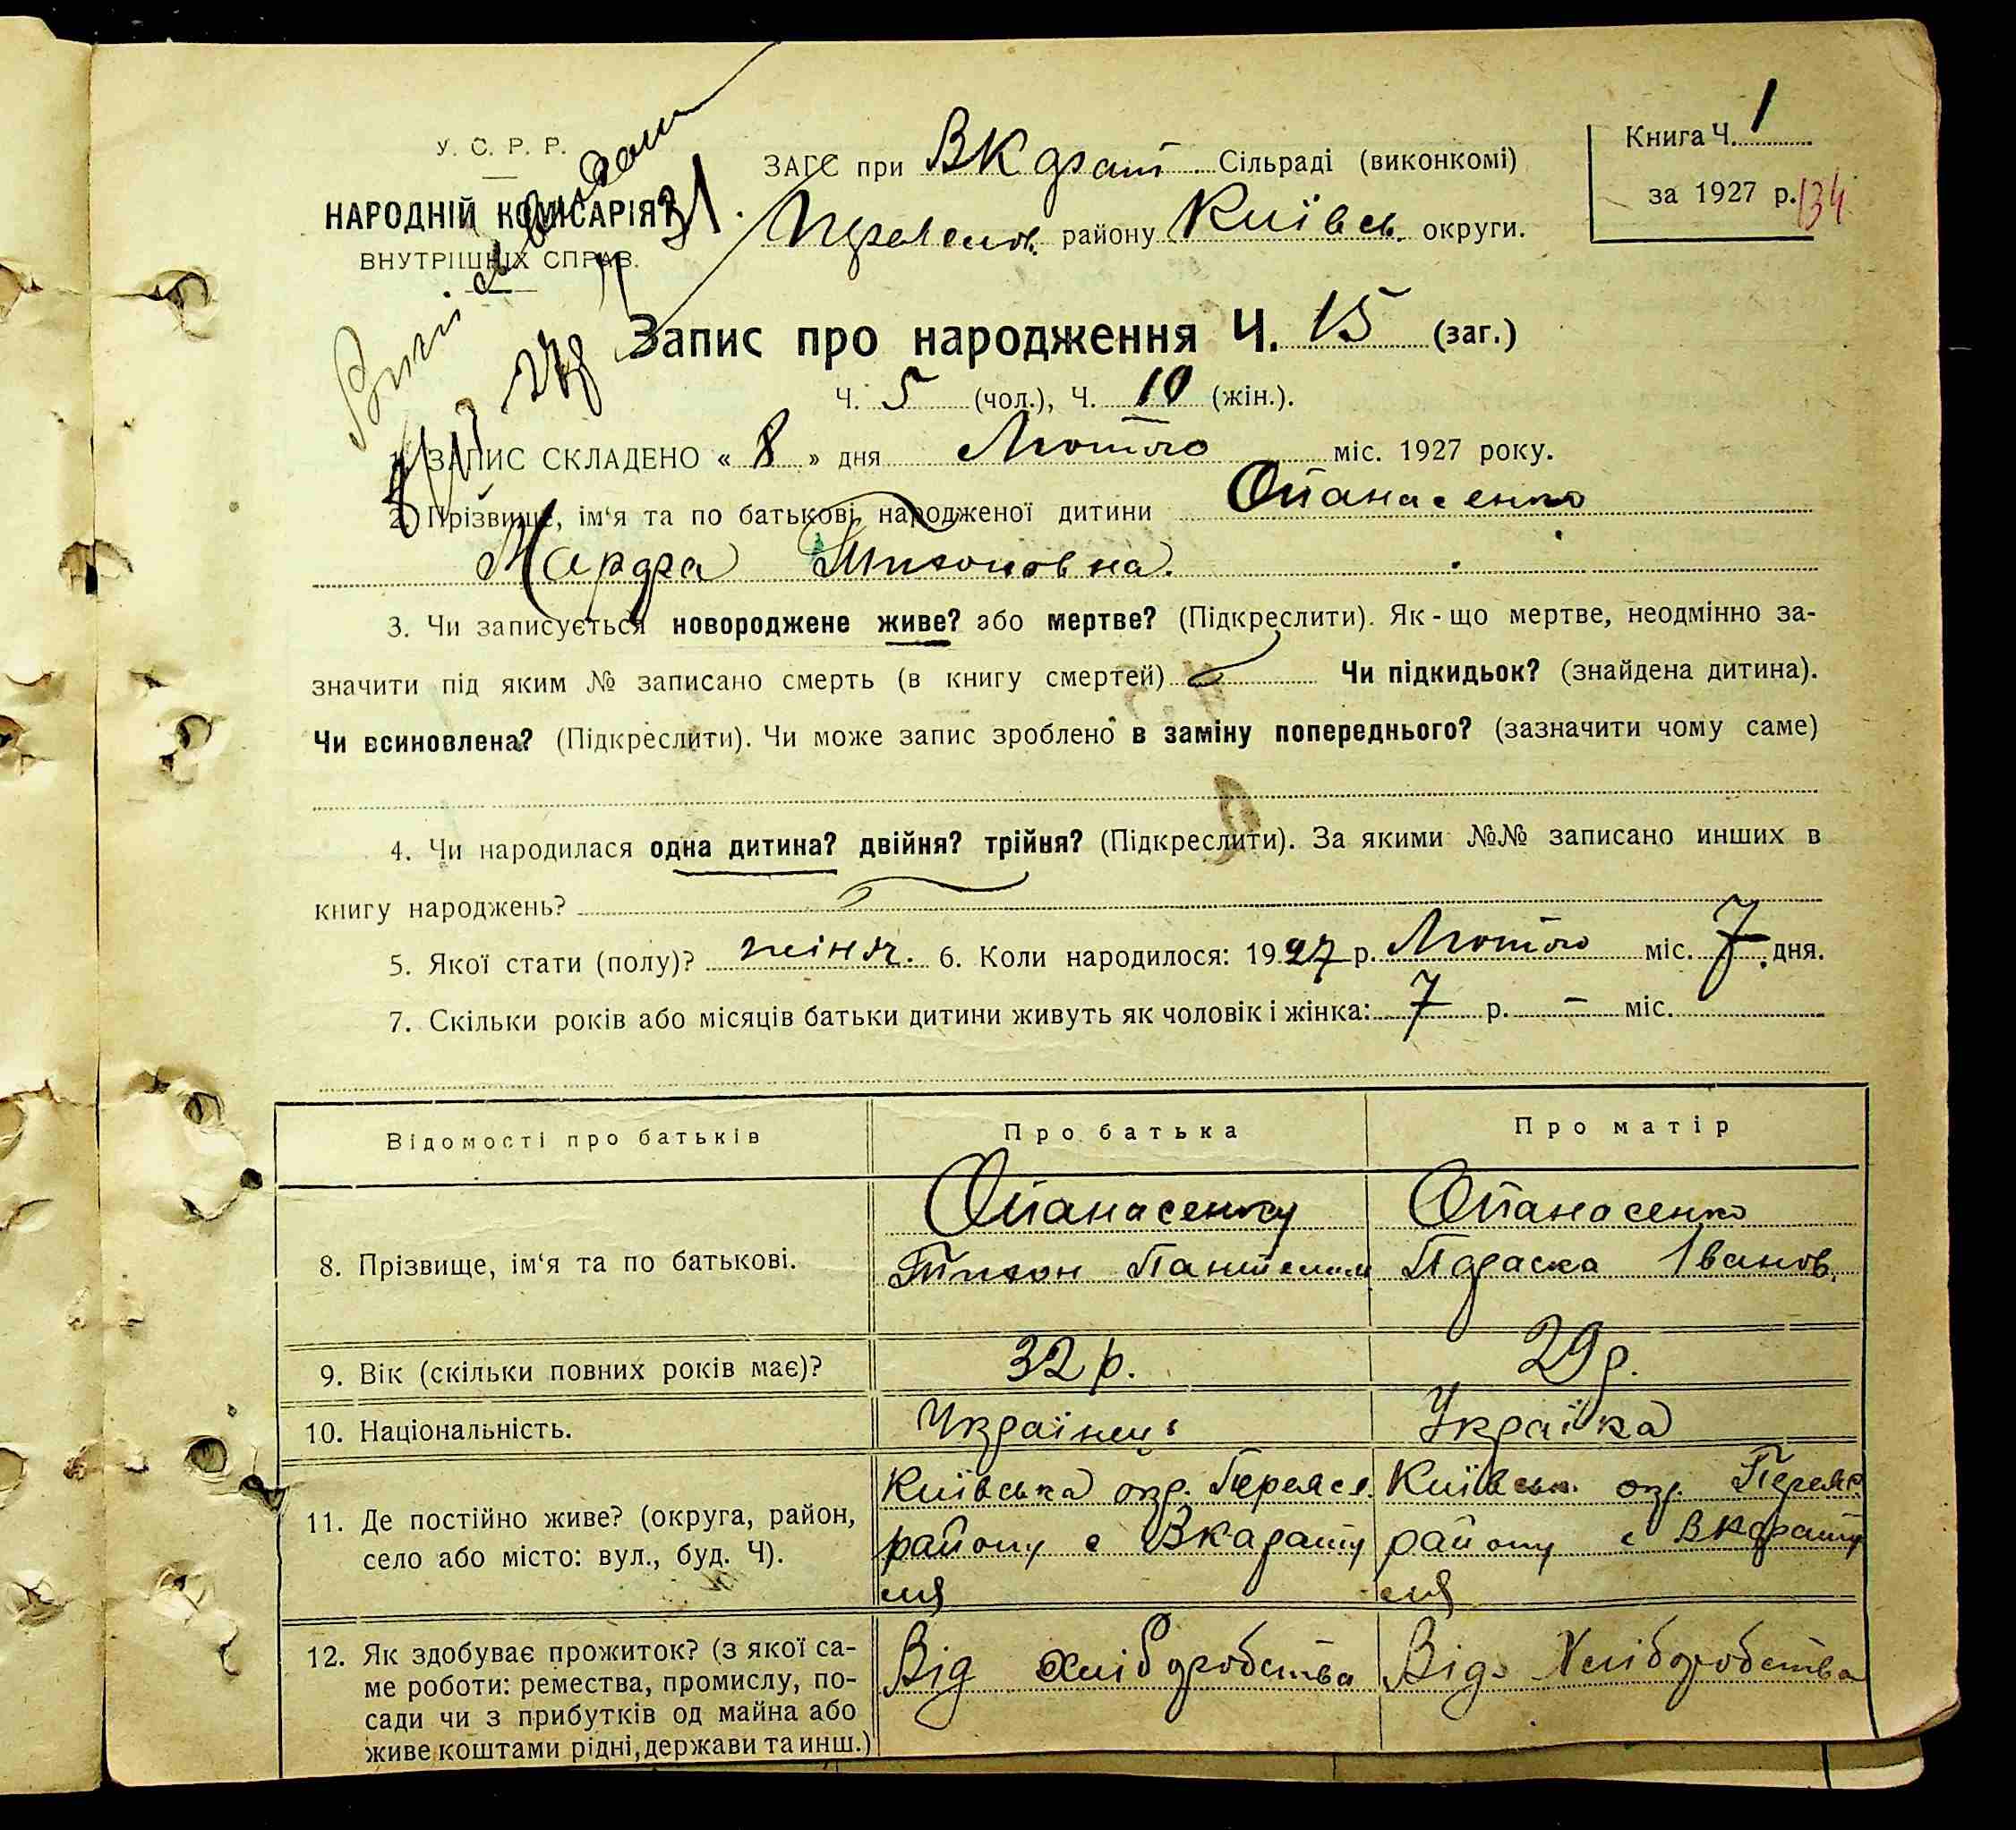 У. С. Р. Р.
НАРОДНІЙ КОМІСАРІЯТ
ВНУТРІШНІХ СПРАВ.
ЗАГС при ВКарат Сільраді (виконкомі)
району Київськ. округи.
Книга Ч. 1
за 1927 р. 134
Запис про народження Ч. 15 (заг.)
Ч. 5 (чол.), Ч. 10 (жін.).
1. ЗАПИС СКЛАДЕНО « 8 » дня Лютого міс. 1927 року.
2. Прізвище, ім‘я та по батькові народженої дитини Опанасенко
Марфа Тихоновна.
3. Чи записується новороджене живе? або мертве? (Підкреслити). Як-що мертве, неодмінно за-
значити під яким № записано смерть (в книгу смертей) Чи підкидьок? (знайдена дитина).
Чи всиновлена? (Підкреслити). Чи може запис зроблено в заміну попереднього? (зазначити чому саме)
4. Чи народилася одна дитина? двійня? трійня? (Підкреслити). За якими №№ записано инших в
книгу народжень?
5. Якої стати (полу)? жіноч. 6. Коли народилося: 1927 р. Лютого міс. 7 дня.
7. Скільки років або місяців батьки дитини живуть як чоловік і жінка: 7 р. – міс.
Відомості про батьків
Про батька
Про матір
8. Прізвище, ім‘я та по батькові.
Опанасенко
Тихон Пантелим
Опанасенко
Параска Іванов.
9. Вік (скільки повних років має)?
32 р.
29 р.
10. Національність.
Українець
Українка
11. Де постійно живе? (округа, район,
село або місто: вул., буд. Ч).
Київська окр. Переясл.
району с ВКарату
ля
Київськ. окр. Переяс.
району с ВКарату
ля
12. Як здобуває прожиток? (з якої са-
ме роботи: ремества, промислу, по-
сади чи з прибутків од майна або
живе коштами рідні, держави та инш.)
Від хліборобства
Від Хліборобства